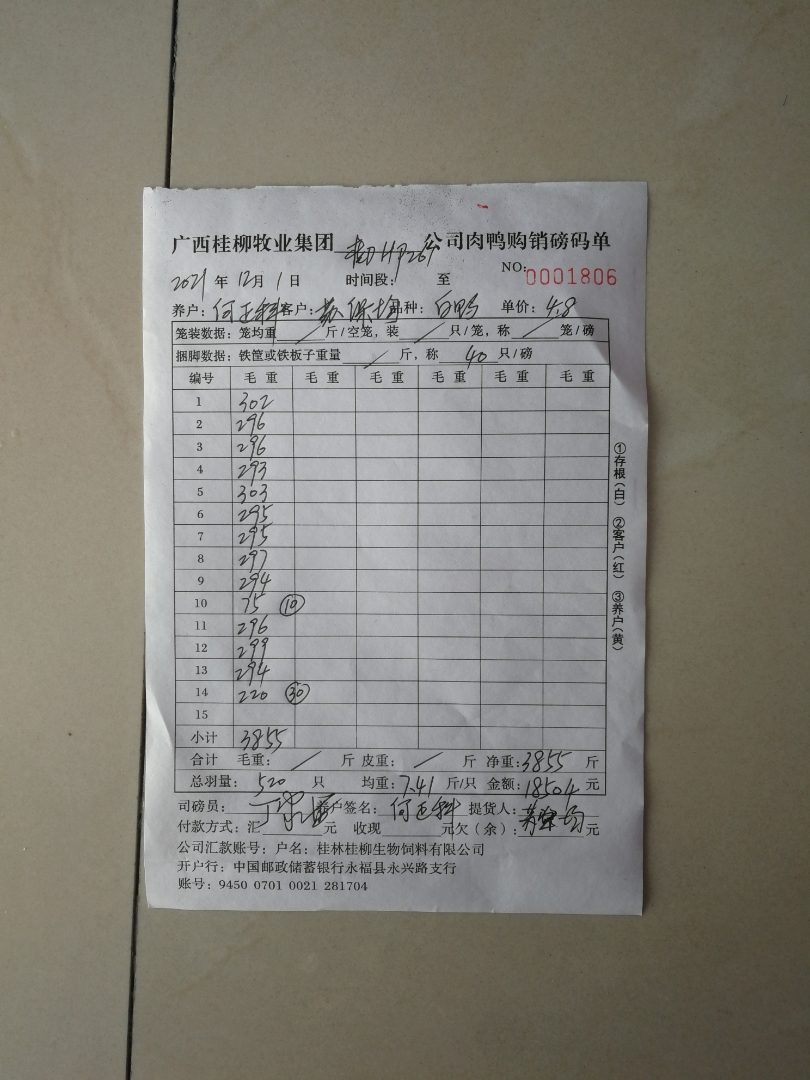 广西桂柳牧业集团 公司肉鸭购销磅码单
2021年12月1日 时间段: 至 NO:0001806
养户:何正科 客户:苏保均 品种:白鸭 单价:4.8
笼装数据:笼均重 / 斤/空笼,装 / 只/笼,称 / 笼/磅
捆脚数据:铁筐或铁板子重量 / 斤,称 40 只/磅
编号 毛重 毛重 毛重 毛重 毛重 毛重
1 302
2 296
3 296
4 293
5 303
6 295
7 295
8 297
9 294
10 75 ⑩
11 296
12 299
13 294
14 220 ㉚
15
小计 3855
合计 毛重: / 斤 皮重: / 斤 净重:3855 斤
总羽量: 520 只 均重:7.41 斤/只 金额:18504 元
司磅员: 养户签名:何正科 提货人:
付款方式:汇 元 收现 元欠(余): 元
公司汇款账号:户名:桂林桂柳生物饲料有限公司
开户行:中国邮政储蓄银行永福县永兴路支行
账号:9450 0701 0021 281704
①存根(白) ②客户(红) ③养户(黄)